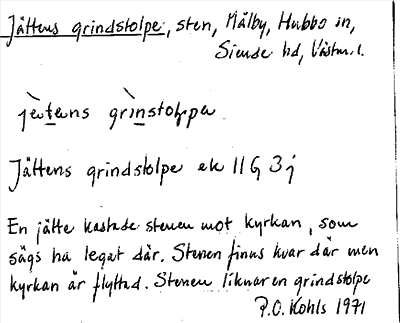 Jättens grindstolpe, sten, Målby, Hubbo sn,
Siende hd, Västm. l.
jèt̲ens grìn̲stoɭpe
Jättens grindstolpe ek 11G 3j
En jätte kastade stenen mot kyrkan, som
sägs ha legat där. Stenen finns kvar där men
kyrkan är flyttad. Stenen liknar en grindstolpe
P.O. Kohls 1971